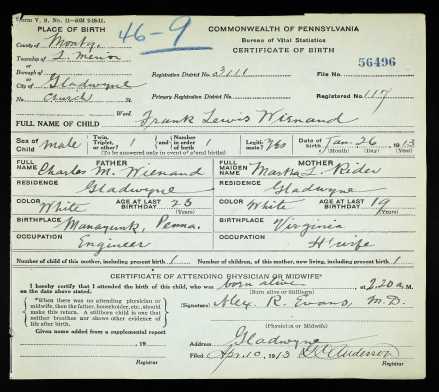 Form V. S. No. 11
46-9
PLACE OF BIRTH
COMMONWEALTH OF PENNSYLVANIA
County of Montg.
Bureau of Vital Statistics
CERTIFICATE OF BIRTH
Township of L. Merion
56496
Borough of
Registration District No. 3111
File No.
City of Gladwyne
No. Church St.
Primary Registration District No.
Registered No. 117
Ward
FULL NAME OF CHILD Frank Lewis Wienand
Sex of Child male
Twin, Triplet, or other?
and
Number in order of birth
Legitimate? Yes
Date of birth Jan. 26 1913
(To be answered only in event of plural births)
(Month) (Day) (Year)
FATHER
MOTHER
FULL NAME Charles M. Wienand
FULL MAIDEN NAME Martha L. Rider
RESIDENCE Gladwyne
RESIDENCE Gladwyne
COLOR White
AGE AT LAST BIRTHDAY 23 (Years)
COLOR White
AGE AT LAST BIRTHDAY 19 (Years)
BIRTHPLACE Manayunk, Penna.
BIRTHPLACE Virginia
OCCUPATION Engineer
OCCUPATION H'wife
Number of child of this mother, including present birth 1
Number of children, of this mother, now living, including present birth 1
CERTIFICATE OF ATTENDING PHYSICIAN OR MIDWIFE*
I hereby certify that I attended the birth of this child, who was born alive at 2.20 a. M.
on the date above stated.
(Born alive or Stillborn)
*When there was no attending physician or
midwife, then the father, householder, etc., should
make this return. A stillborn child is one that
neither breathes nor shows other evidence of
life after birth.
(Signature) Alex. R. Evans, M.D.
(Physician or Midwife)
Given name added from a supplemental report
19
Address Gladwyne
Filed Apr. 10, 1913 Anderson
Registrar
Registrar